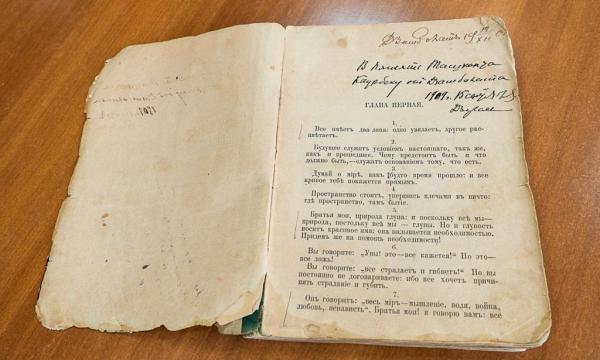 В память
Каурбеку от Дзамболата
1909 г.
ГЛАВА ПЕРВАЯ.
1.
Все имѣетъ два лица: одно увядаетъ, другое рас-
цвѣтаетъ.
2.
Будущее служитъ условіемъ настоящаго, такъ же,
какъ и прошедшее. Чему предстоитъ быть и что
должно быть,—служатъ основаніемъ тому, что есть.
3.
Думай о мірѣ, какъ будто время прошло: и все
кривое тебѣ покажется прямымъ.
4.
Пространство стоитъ, упершись плечами въ ничто:
гдѣ пространство, тамъ бытіе.
5.
Братья мои, природа глупа: и поскольку всѣ мы—
природа, постольку всѣ мы — глупы. Но и глупость
носитъ красивое имя: она называется необходимостью.
Придемъ же на помощь необходимости!
6.
Вы говорите: „Увы! это—все кажется!“ Но это—
все ложь!
Вы говорите: „все страдаетъ и гибнетъ!“ Но вы
постоянно не договариваете: ибо все хочетъ причи-
нять страданіе и губить.
7.
Онъ говоритъ: „весь міръ—мышленіе, воля, война,
любовь, ненависть“. Братья мои! я говорю вамъ: все